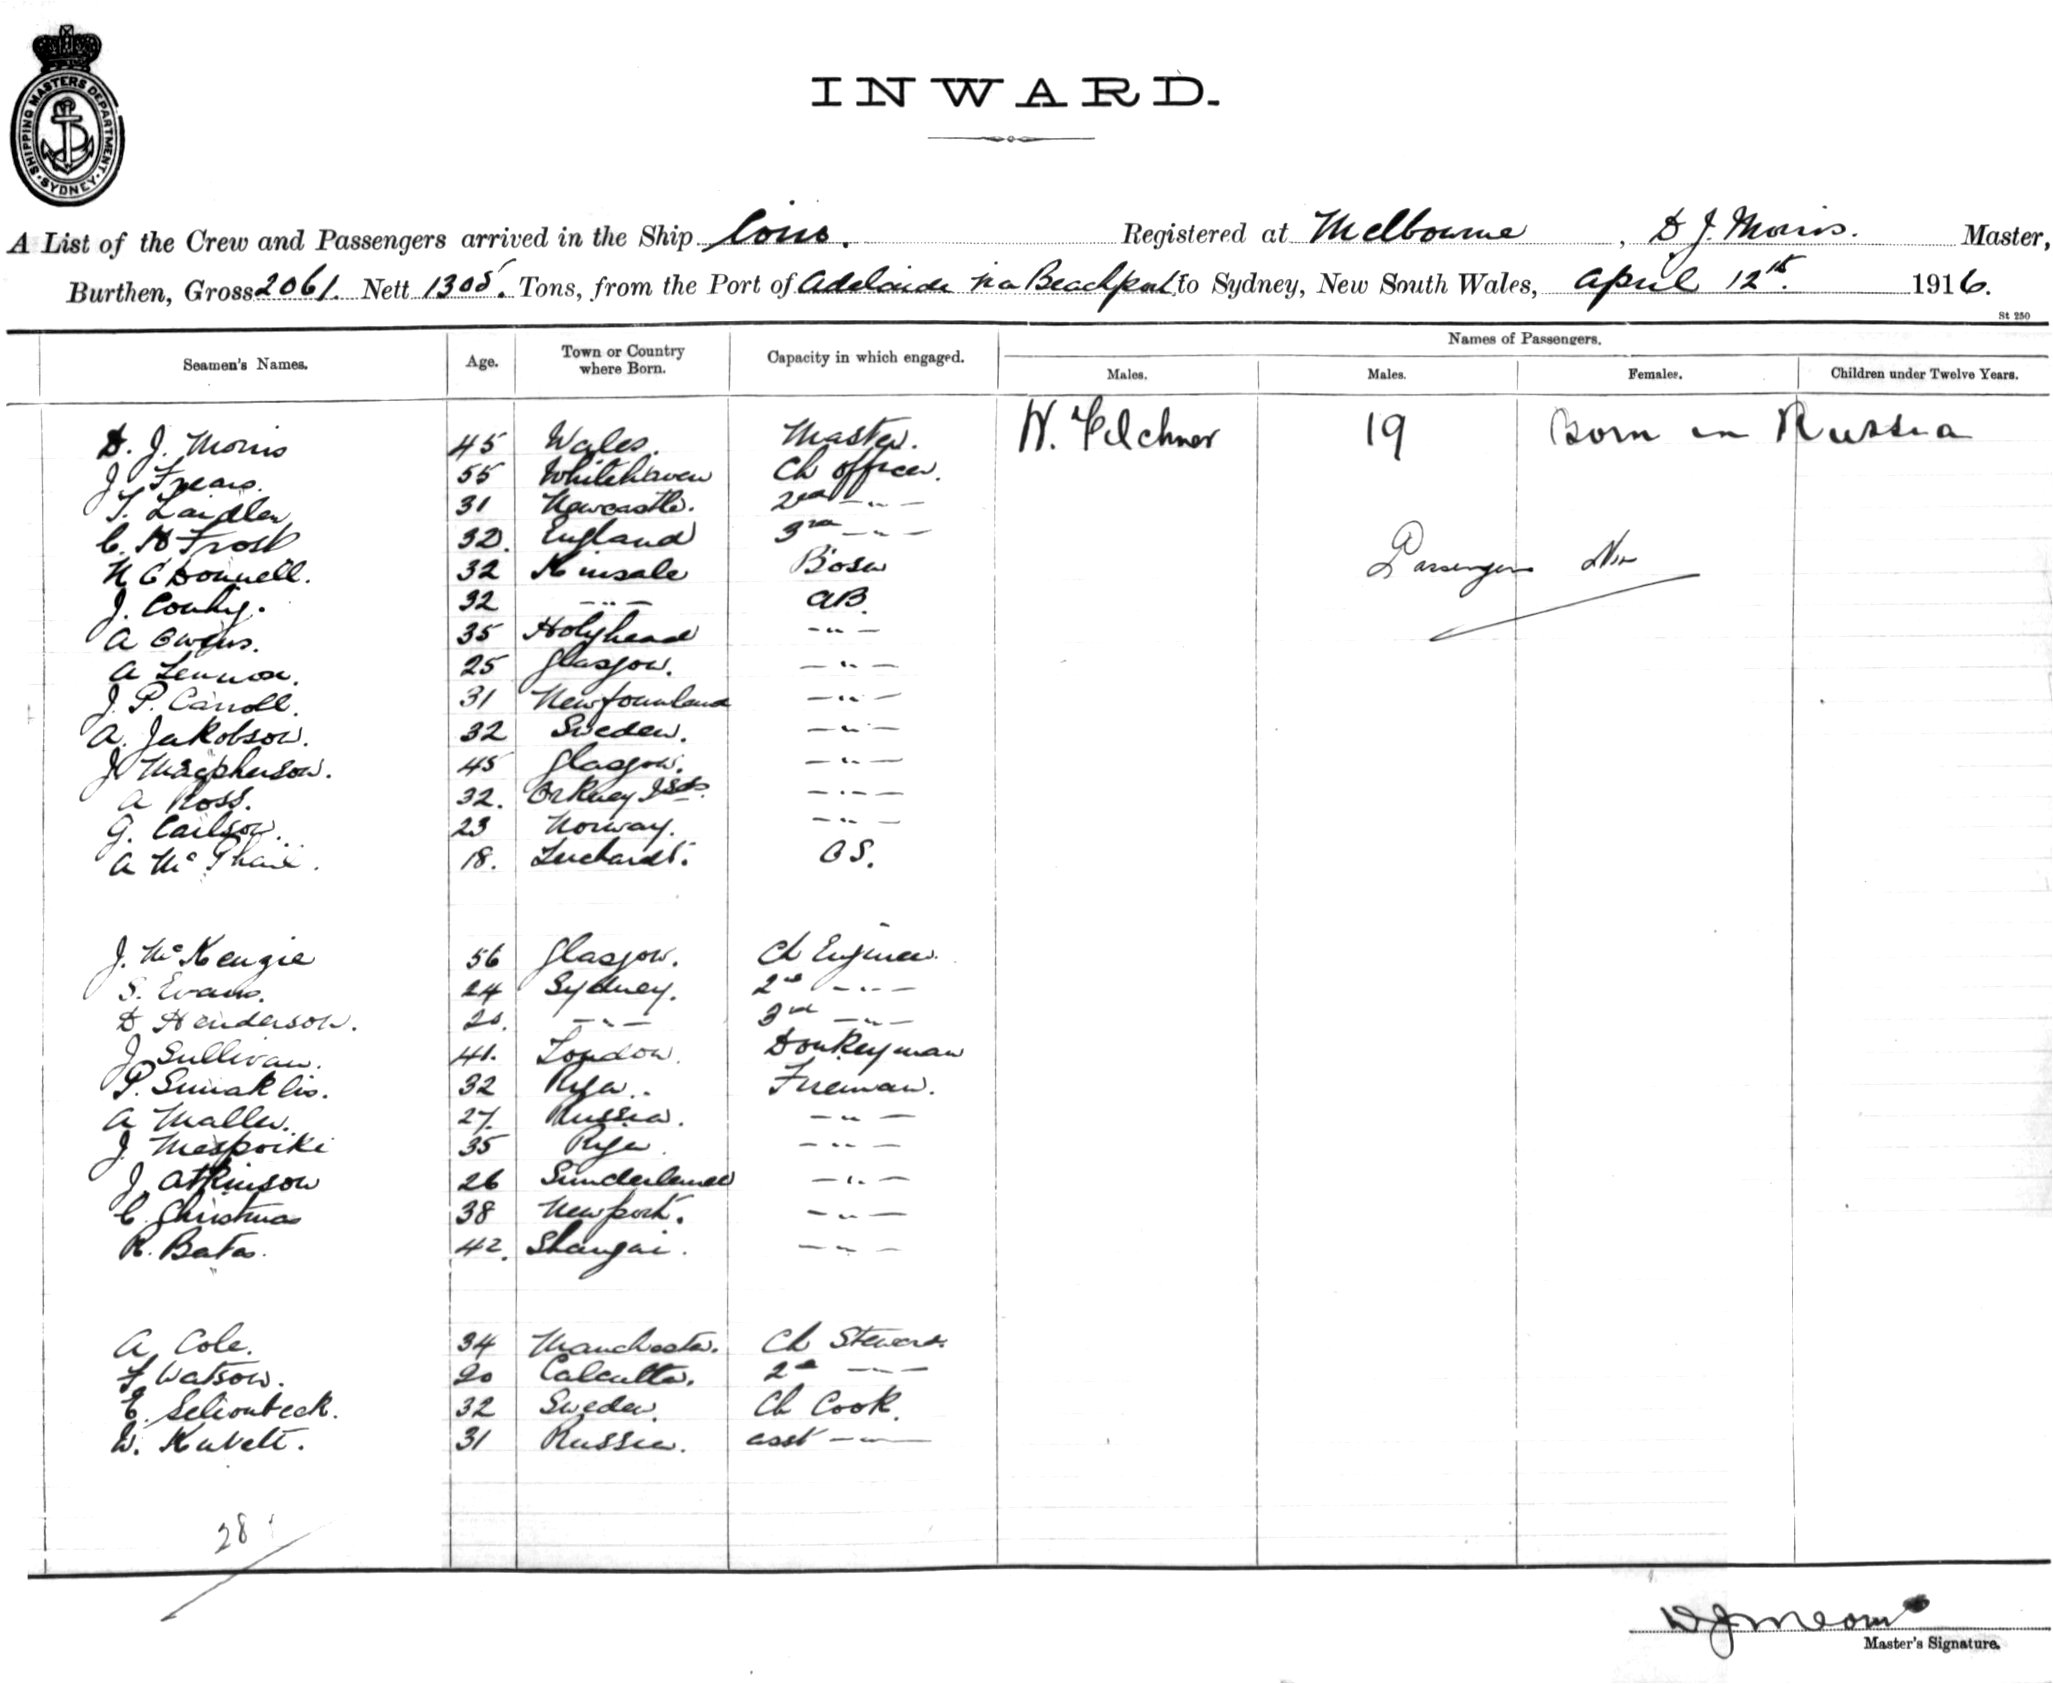 SHIPPING MASTERS DEPARTMENT.
SYDNEY
INWARD.
A List of the Crew and Passengers arrived in the Ship Registered at Melbourne, D J. Morris. Master,
Burthen, Gross 2061. Nett 1305. Tons, from the Port of Adelaide via Beachport to Sydney, New South Wales, April 12th. 1916.
St 250
Seamen's Names. Age. Town or Country where Born. Capacity in which engaged. Names of Passengers.
Males. Males. Females. Children under Twelve Years.
D. J. Morris 45 Wales. Master. W. 19 Born in Russia
J. 55 Whitehaven Ch officer.
T. Laidler 31 Newcastle. 2nd -"-
C. H Frost 32. England 3rd -"-
O'Donnell. 32 Kinsale Bosn
J. 32 -"- AB.
A Owens. 35 Holyhead -"-
A Lennox. 25 Glasgow. -"-
J. P. Carroll. 31 Newfounland -"-
A. Jakobson. 32 Sweden. -"-
J Macpherson. 45 Glasgow. -"-
A Ross. 32. Orkney Isds. -"-
G. Carlson. 23 Norway. -"-
A McPhail. 18. OS.
Passengers Nil
J. McKenzie 56 Glasgow. Ch Engineer.
S. Evans. 24 Sydney. 2nd -"-
D Henderson. -"- 3rd -"-
J Sullivan. 41. London. Donkeyman
P. 32 Riga. Fireman.
A Maller. 27. Russia. -"-
J 35 Riga -"-
J. Atkinson 26 Sunderland -"-
C. Christmas 38 Newport. -"-
R. Bates. 42. Shangai. -"-
A Cole. 34 Manchester. Ch Steward.
F Watson. 20 Calcutta. 2nd -"-
E. 32 Sweden. Ch Cook.
W. 31 Russia. asst -"-
28
D J Morris
Master's Signature.